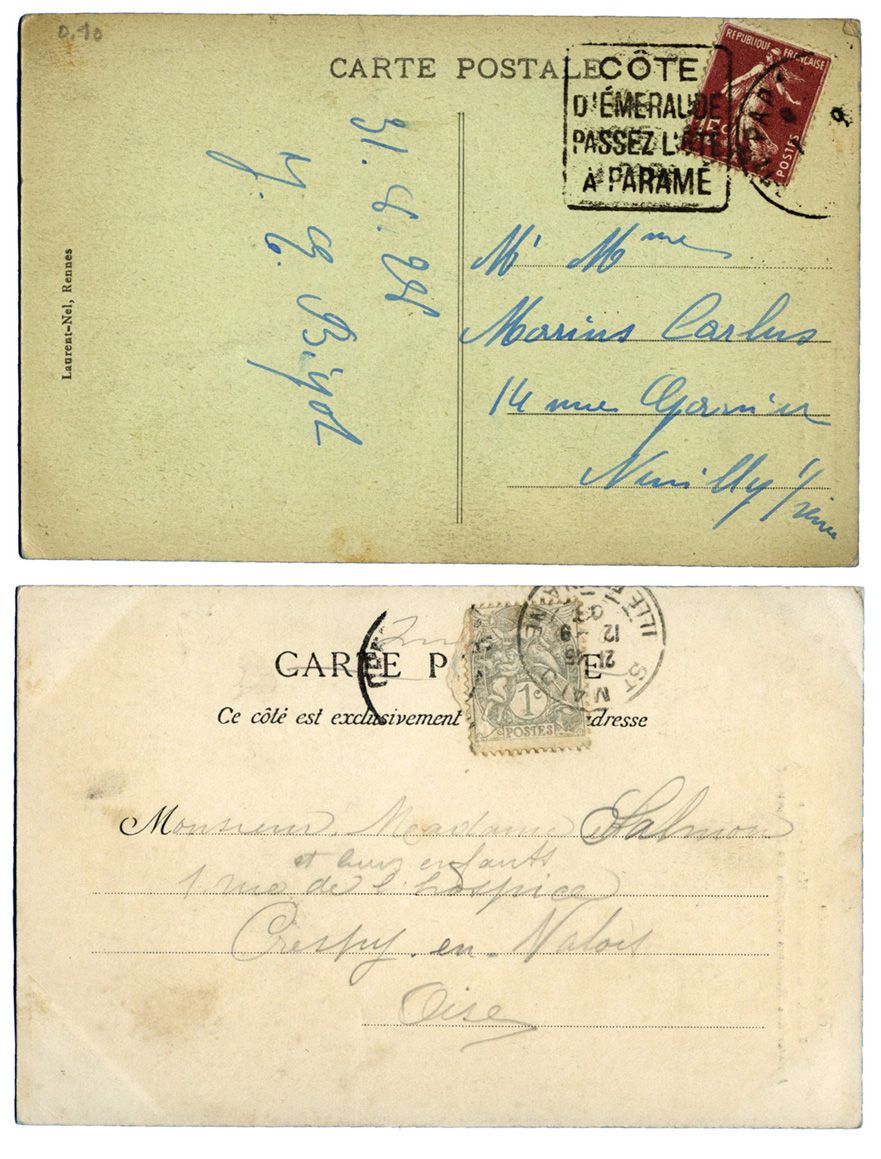 0,10
CARTE POSTALE
CÔTE
D'ÉMERAUDE
PASSEZ L'ÉTÉ
À PARAMÉ
RÉPUBLIQUE FRANÇAISE
POSTES
PARA
31. 8. 28
Laurent-Nel, Rennes
Mr Mme
Marius Carlus
14 rue Garnier
Neuilly s/Seine
CARTE P E
Ce côté est exclusivement adresse
1c
POSTES
ST MALO
ILLE
21 45
12 9
03
Monsieur Madame Salmon
et leurs enfants
1 rue de l'hospice
Crespy-en-Valois
Oise